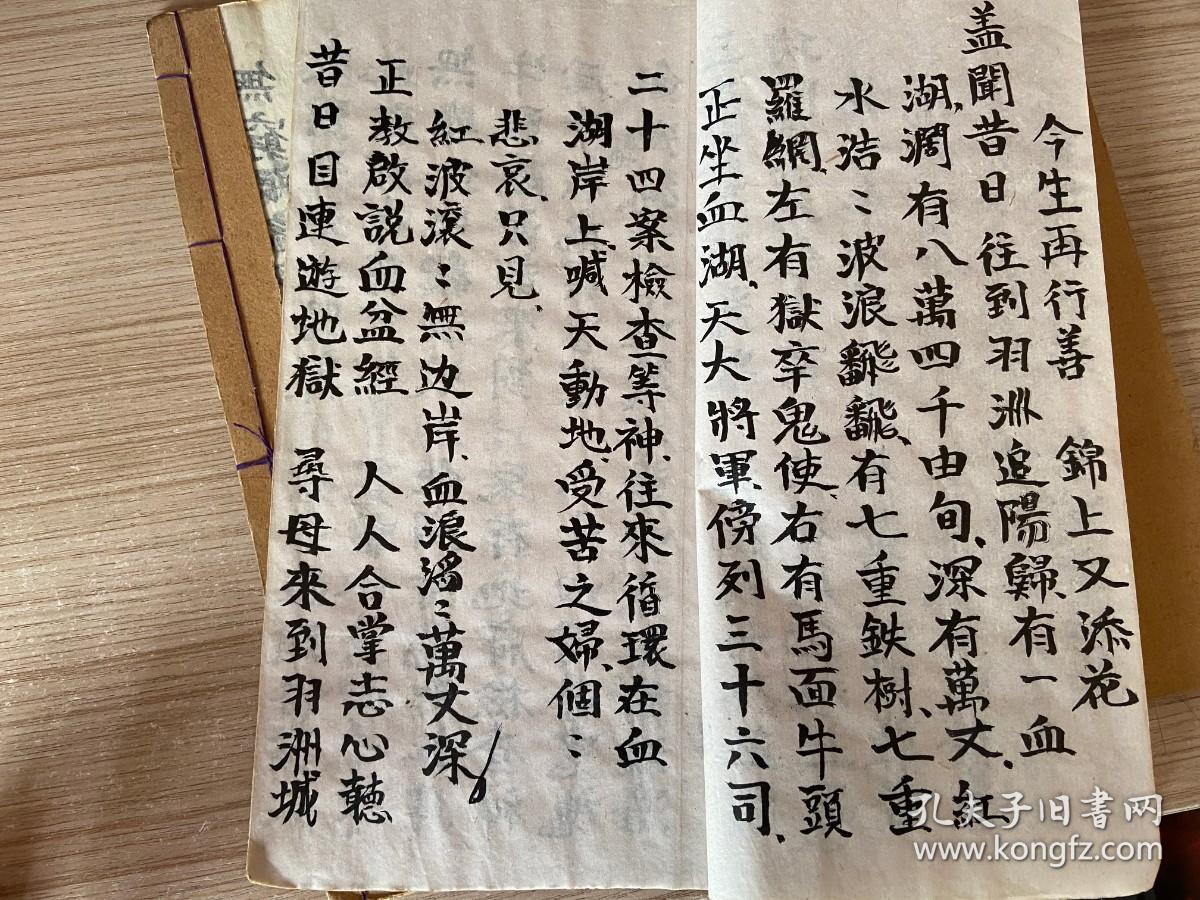 今生再行善 錦上又添花
盖聞昔日往到羽洲追陽縣有一血
湖,濶有八萬四千由旬、深有萬丈、紅
水浩〻波浪飜飜、有七重鉄樹、七重
羅網、左有獄卒鬼使、右有馬面牛頭
正坐血湖、天大將軍、傍列三十六司、
二十四案檢查等神、往來循環在血
湖岸上、喊天動地、受苦之婦、個〻
悲哀、只見、
紅波滾〻無边岸、血浪滔〻萬丈深
正教啟説血盆經 人人合掌志心聽
昔日目連遊地獄 尋母來到羽洲城
無
孔夫子旧书网
www.kongfz.com